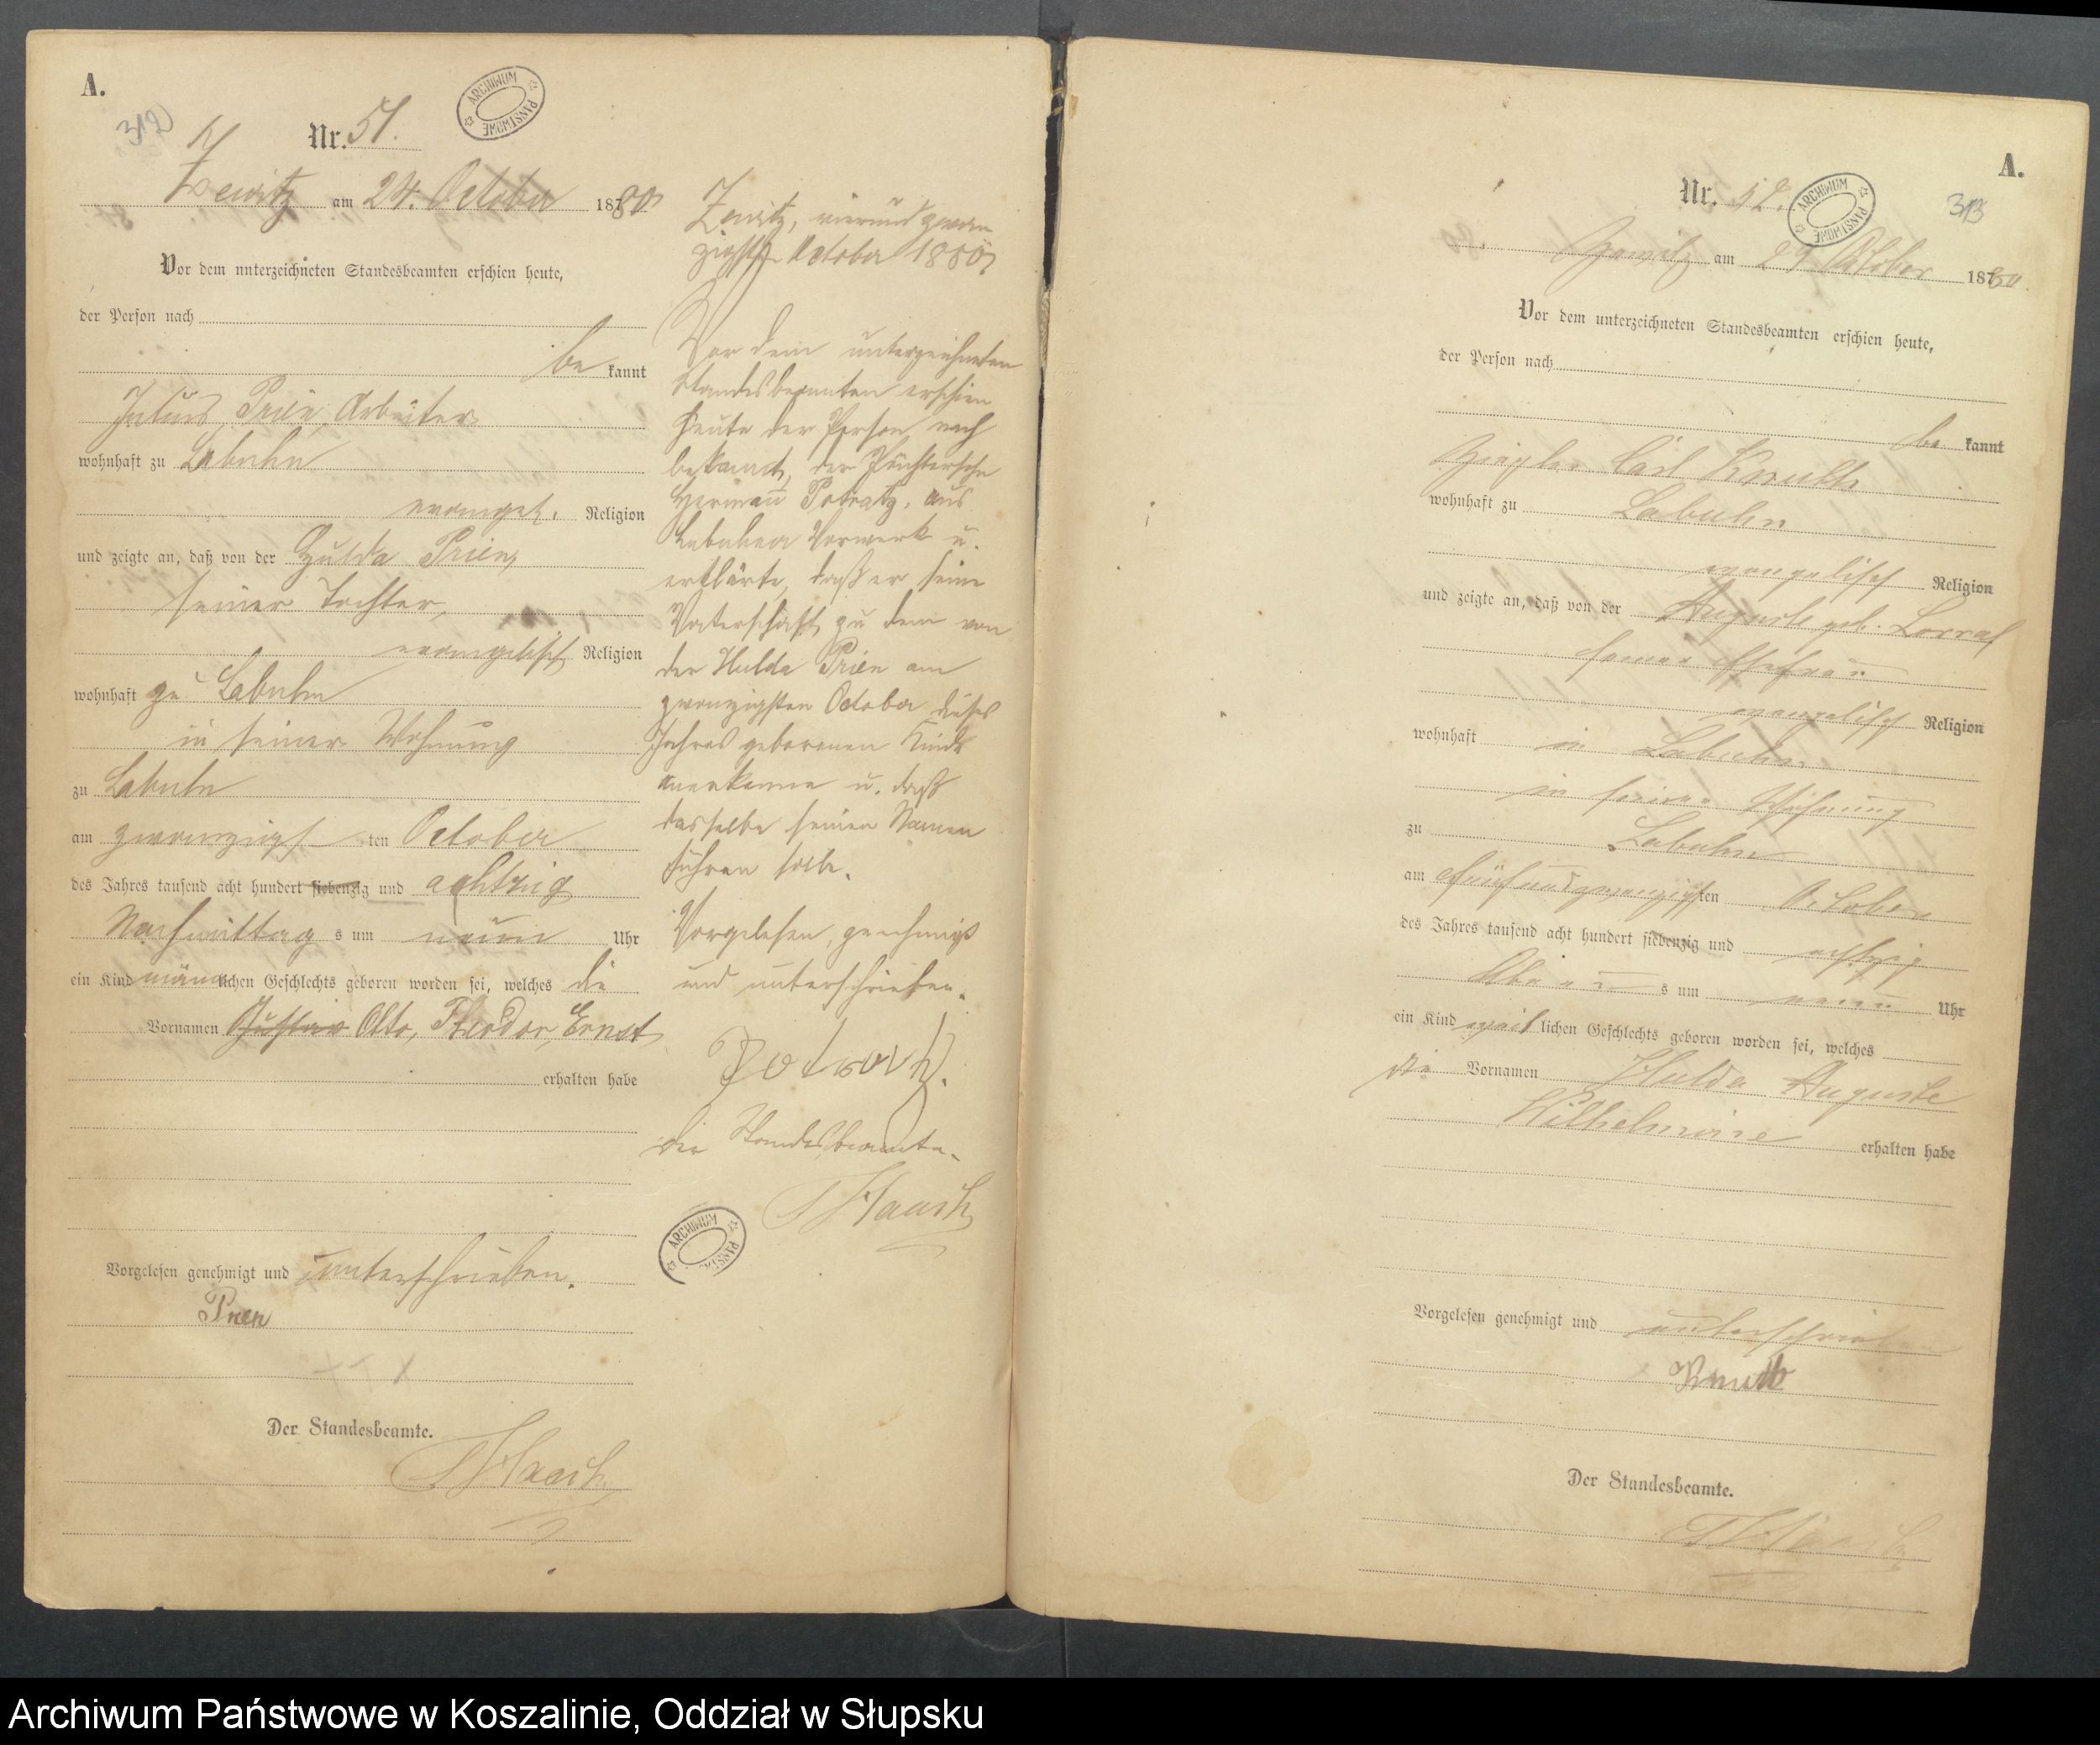 A.
312
Nr. 51.
ARCHIWUM PAŃSTWOWE
Zewitz am 24. October 1880
Vor dem unterzeichneten Standesbeamten erschien heute,
der Person nach
be kannt
Julius Prien, Arbeiter
wohnhaft zu Labuhn
evangel. Religion
und zeigte an, daß von der Hulda Prien,
seiner Tochter,
evangelisch Religion
wohnhaft zu Labuhn
in seiner Wohnung
zu Labuhn
am zwanzigsten October
des Jahres tausend acht hundert siebenzig und achtzig
Nachmittag s um neun Uhr
ein Kind männlichen Geschlechts geboren worden sei, welches die
Vornamen Gustav Otto, Theodor, Ernst
erhalten habe
Vorgelesen genehmigt und unterschrieben.
Prien
Der Standesbeamte.
Haack
Zewitz, vierundzwan
zigsten October 1880
Vor dem unterzeichneten
Standesbeamten erschien
heute der Person nach
bekannt, der
Herman Potratz, aus
Labuhner Vorwerk u.
erklärte, daß er seine
Vaterschaft zu dem von
der Hulda Prien am
zwanzigsten October dieses
Jahres geborenen Kinde
anerkenne u. daß
dasselbe seinen Namen
führen solle.
Vorgelesen, genehmigt
und unterschrieben.
Potratz.
Der Standesbeamte.
Haack
ARCHIWUM PAŃSTW
A.
Nr. 52.
ARCHIWUM PAŃSTWOWE
313
Zewitz am 29 October 1880.
Vor dem unterzeichneten Standesbeamten erschien heute,
der Person nach
be kannt
Ziegler Carl Knuth
wohnhaft zu Labuhn
evangelisch Religion
und zeigte an, daß von der Auguste geb.
seiner Ehefrau
evangelisch Religion
wohnhaft in Labuhn
in seiner Wohnung
zu Labuhn
am fünfundzwanzigsten October
des Jahres tausend acht hundert siebenzig und achtzig
Abends um neun Uhr
ein Kind weiblichen Geschlechts geboren worden sei, welches
die Vornamen Hulda Auguste
Wilhelmine erhalten habe
Vorgelesen genehmigt und unterschrieben
Knuth
Der Standesbeamte.
Haack
Archiwum Państwowe w Koszalinie, Oddział w Słupsku